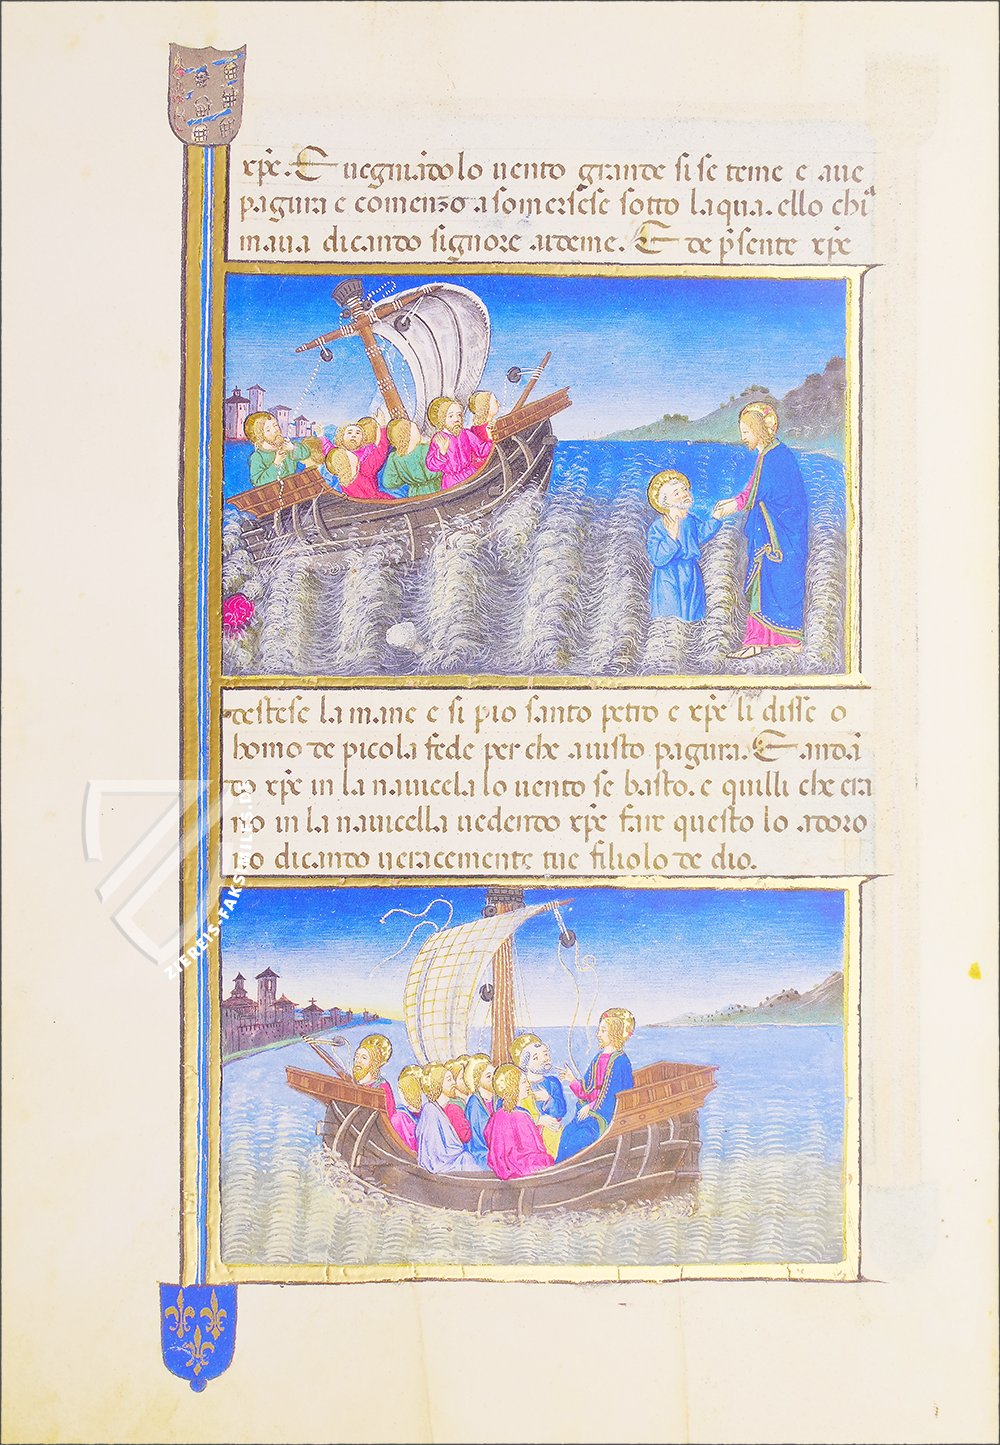 xp̄e. E uegniādo lo uento grande si se teme e aue
pagura e comenzo a somersese sotto laqua. ello chi
maua dicando signore aideme. E de p̄sente xp̄e
destese la mane e si pio santo petro e xp̄e li disse o
homo de picola fede per che auisto pagura. E andā
do xp̄e in la nauicela lo uento se basto. e quilli che era
no in la nauicella uedendo xp̄e fair questo lo adoro
no dicando ueracemente tue filiolo de dio.
ZIEREIS-FAKSIMILES.DE